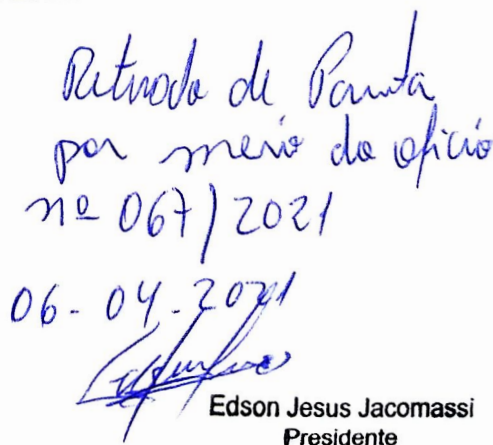 Retirado de Pauta
por meio do ofício
nº 067/2021
06-04-2021
Edson Jesus Jacomassi
Presidente